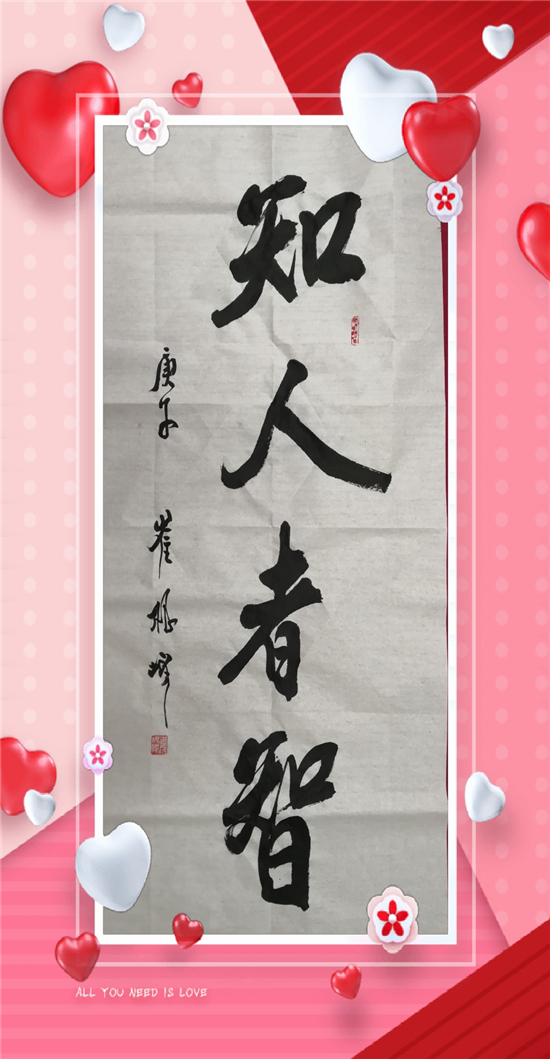 知人者智
庚子
崔
ALL YOU NEED IS LOVE